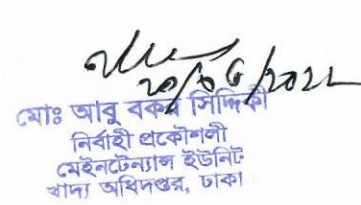 ২০/০৬/২০২২
মোঃ আবু বকর সিদ্দিকী
নির্বাহী প্রকৌশলী
মেইনটেন্যান্স ইউনিট
খাদ্য অধিদপ্তর, ঢাকা